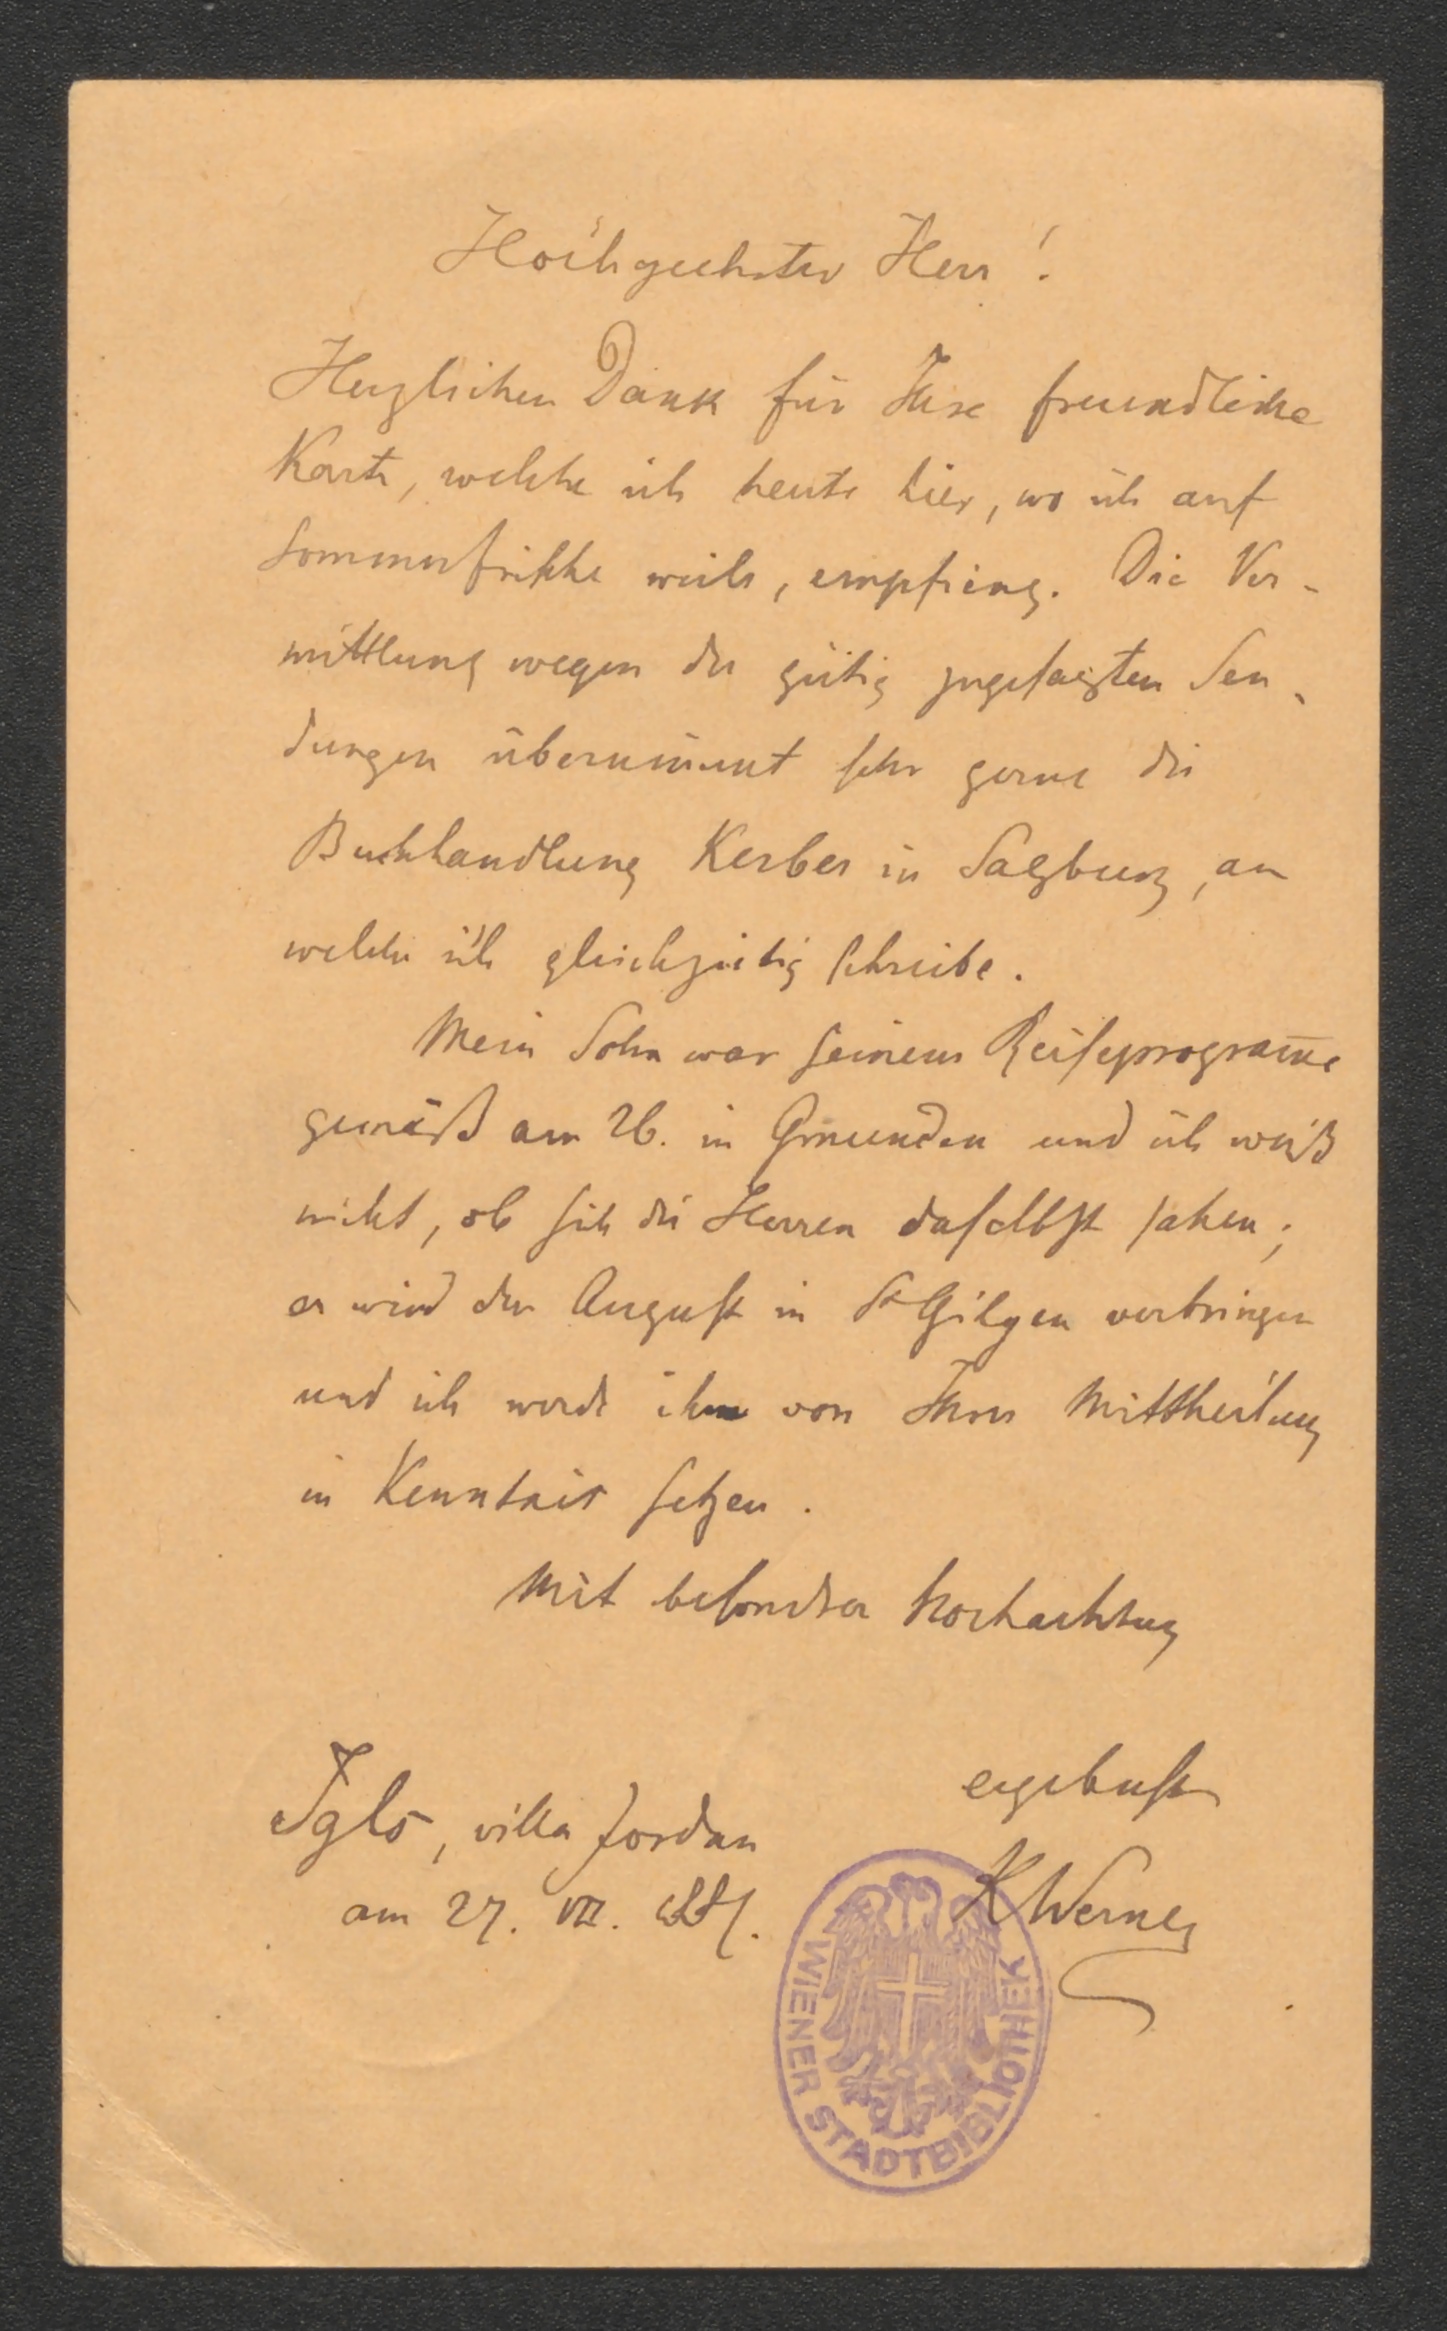 Hochgeehrter Herr!
Herzlichen Dank für Ihre freundliche
Karte, welche ich heute hier, wo ich auf
Sommerfrische weile, empfieng. Die Ver-
mittlung wegen der gütig zugesagten Sen-
dungen übernim̄t sehr gerne die
Buchhandlung Kerber in Salzburg, an
welche ich gleichzeitig schreibe.
Mein Sohn war seinem Reiseprogram̄e
gemäß am 26. in Gmunden und ich weiß
nicht, ob sich die Herren daselbst sahen;
er wird den August in St Gilgen verbringen
und ich werde ihm von Ihrer Mittheilung
in Kenntnis setzen.
Mit besondrer Hochachtung
ergebenst
Igls, villa Jordan
KWerner
am 27. VII.
WIENER STADTBIBLIOTHEK